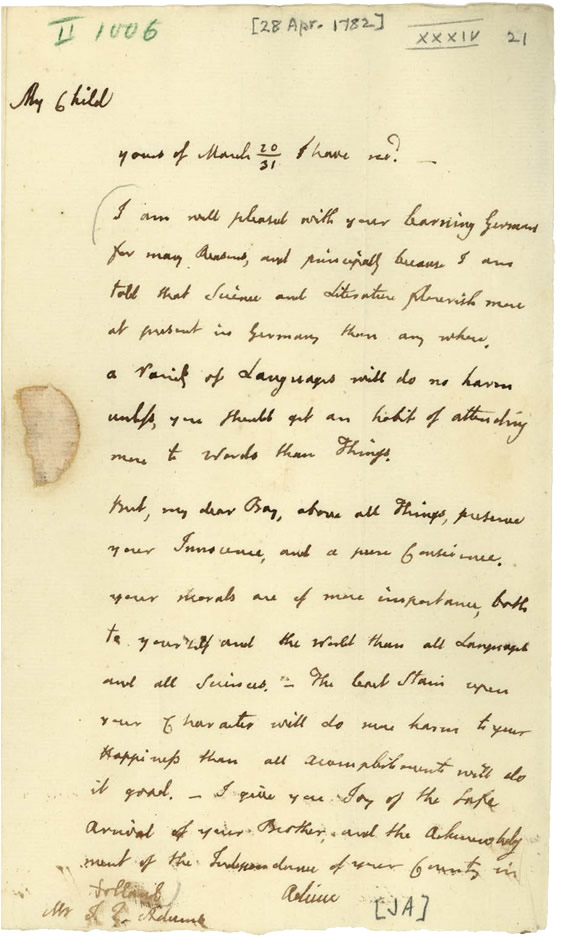 II 1006 [28 Apr. 1782] XXXIV 21
My Child
yours of March 20/31 I have recd. —
I am well pleased with your learning German
for many Reasons, and principally because I am
told that Science and Literature flourish more
at present in Germany than any where.
a Variety of Languages will do no harm
unless, you should get an habit of attending
more to Words than Things.
But, my dear Boy, above all Things, preserve
your Innocence, and a pure Conscience.
your morals are of more importance, both
to yourself and the World than all Languages
and all Sciences. — The least Stain upon
your Character will do more harm to your
Happiness than all accomplishments will do
it good. — I give you Joy of the safe
arrival of your Brother, and the Acknowledg
ment of the Independence of your Country in
Holland
Adieu
Mr J. Q. Adams
[JA]